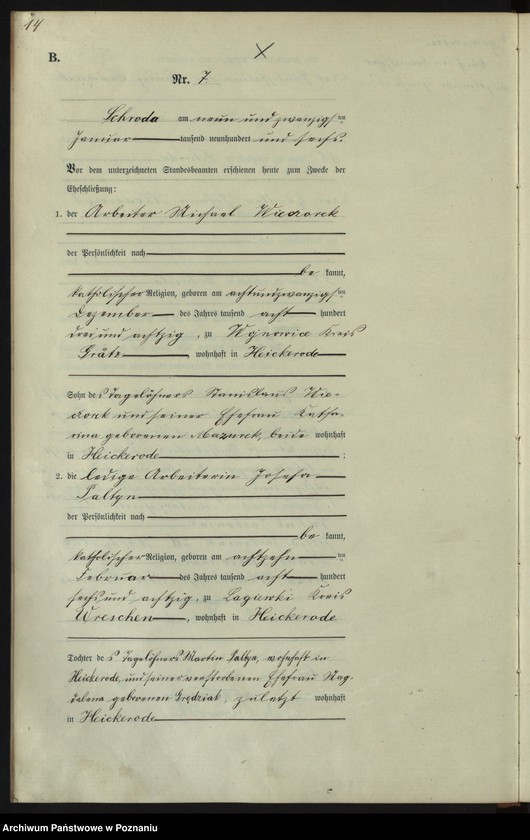 14
B.
Nr. 7.
Schroda am neun und zwanzigsten
Januar tausend neunhundert und sechs.
Vor dem unterzeichneten Standesbeamten erschienen heute zum Zwecke der
Eheschließung:
1. der Arbeiter Michael Wieczorek
der Persönlichkeit nach
be kannt,
katholischer Religion, geboren am achtundzwanzigsten
Dezember des Jahres tausend acht hundert
drei und achtzig, zu Kreis
Grätz, wohnhaft in Heickerode
Sohn des Tagelöhners Stanislaus Wie-
czorek und seiner Ehefrau Katha-
rina geborenen Mazurek, beide wohnhaft
in Heickerode ;
2. die ledige Arbeiterin Josefa
Paltyn
der Persönlichkeit nach
be kannt,
katholischer Religion, geboren am achtzehn ten
Februar des Jahres tausend acht hundert
sechs und achtzig, zu Lagiewki Kreis
Wreschen, wohnhaft in Heickerode
Tochter des Tagelöhners Martin Paltyn, wohnhaft in
Heickerode, und seiner verstorbenen Ehefrau Mag-
dalena geborenen Grędziak, zuletzt wohnhaft
in Heickerode
Archiwum Państwowe w Poznaniu